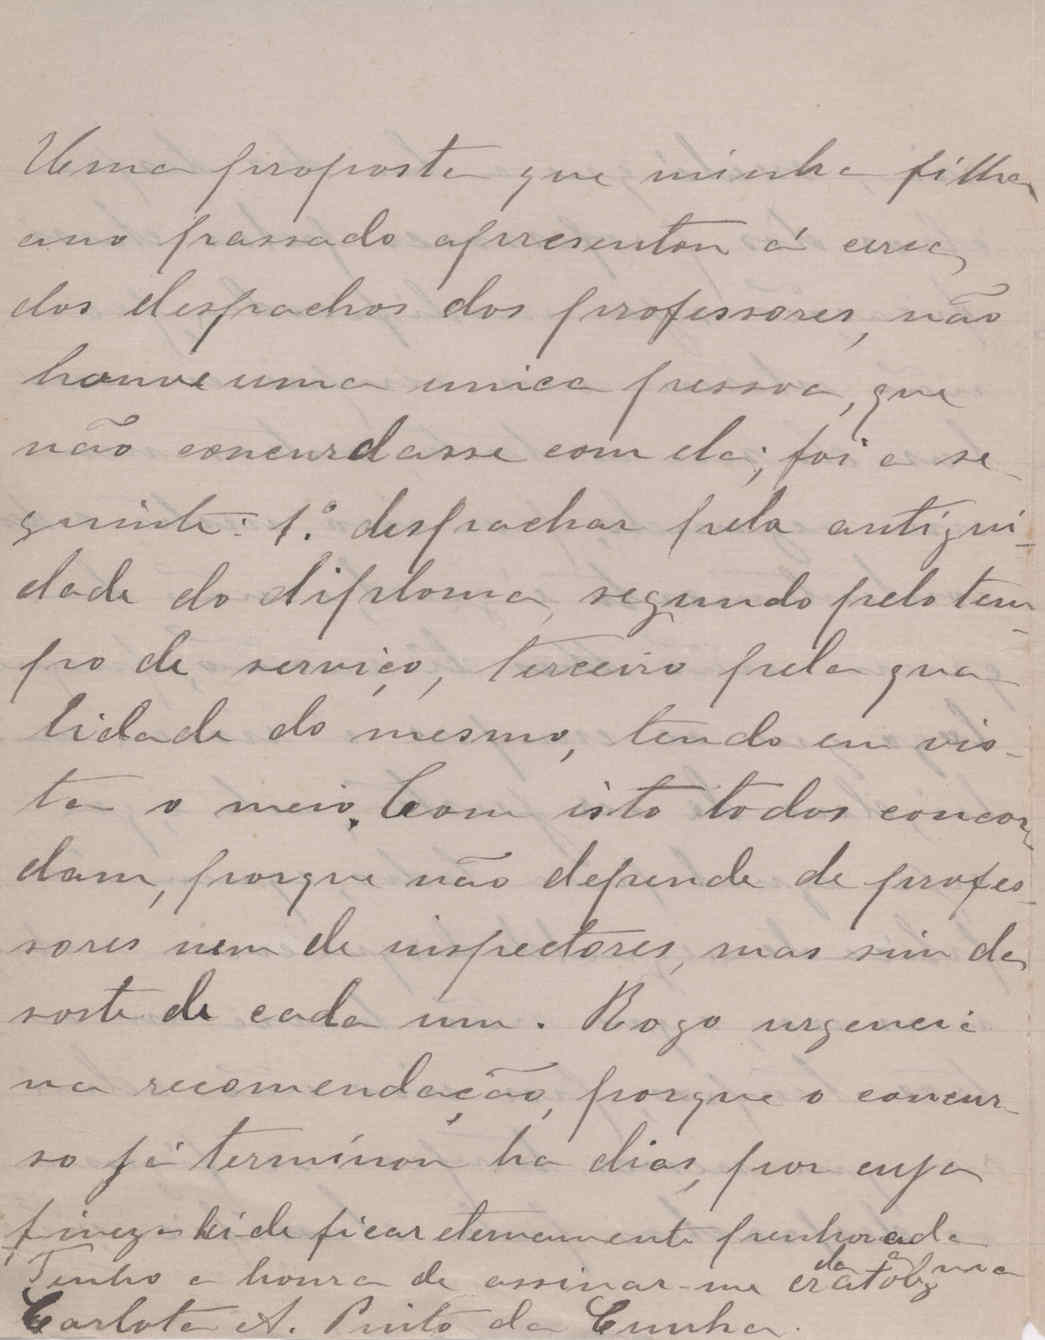 Uma proposta que minha filha
ano passado apresentou á cerca
dos despachos dos professores, não
houve uma unica pessoa, que
não concurdasse com ela; foi a se
guinte: 1.º despachar pela antigui-
dade do diploma, segundo pelo tem-
po de serviço, terceiro pela qua-
lidade do mesmo, tendo em vis-
ta o meio. Com isto todos concor-
dam, porque não depende de profes-
sores nem de inspectores, mas sim da
sorte de cada um. Rogo urgencia
na recomendação, porque o concur-
so já terminou ha dias, por cuja
fineza hei de ficar eternamente penhorada
Tenho a honra de assinar-me
Carlota A. Pinto da Cunha.